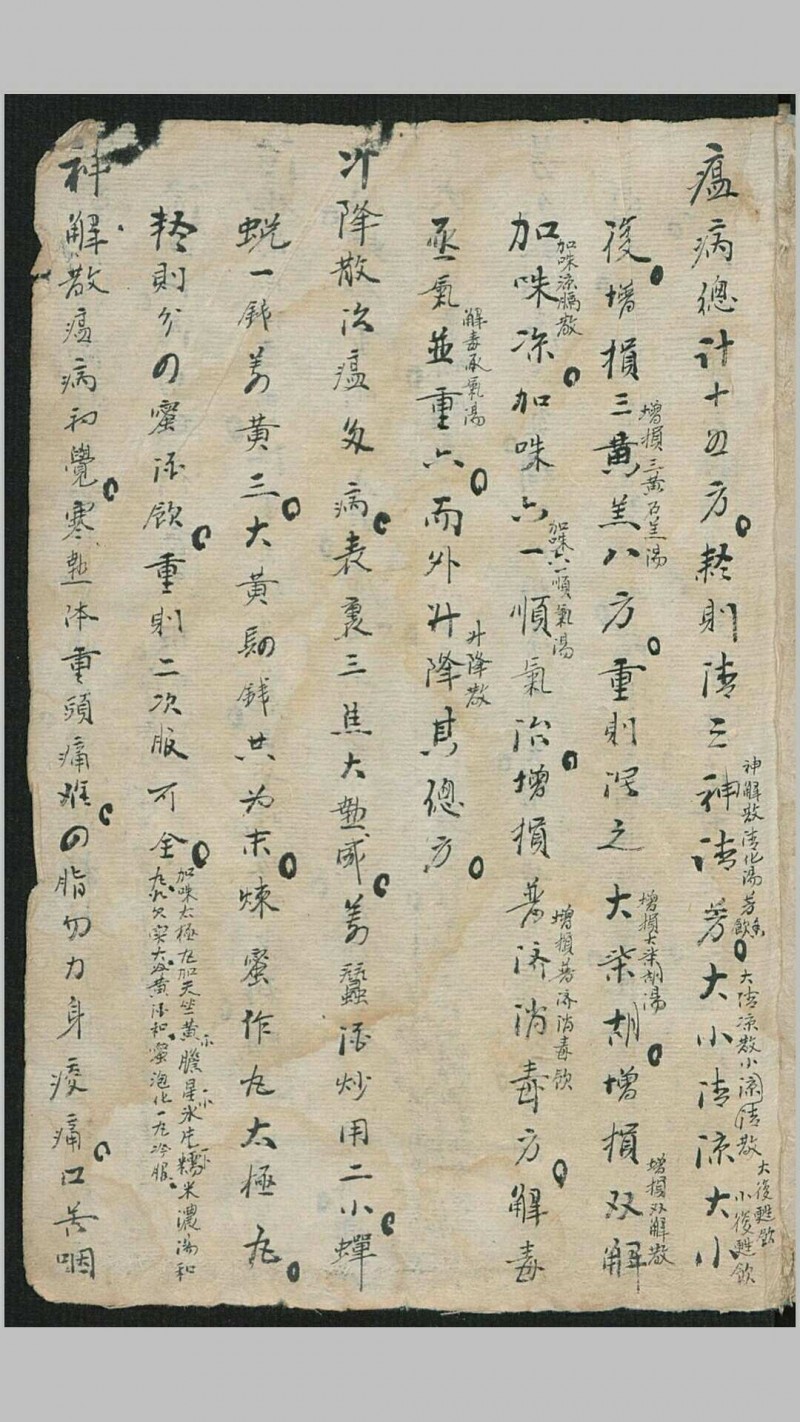 瘟病總計十四方輕則清三神清芳大小清涼大小
神解散清化湯芳香飲
大清涼散小清涼散
大復甦飲
小復甦飲
復增損三黃羔八方重則浸之大柴胡增損双解
增損三黃石羔湯
增損大柴胡湯
增損双解散
加味凉加味六一順氣治增損普济消毒方解毒
加味凉膈散
加味六一順氣湯
增損普济消毒飲
丞氣並重六而外升降其總方
解毒承氣湯
升降散
升降散治瘟多病表裏三焦大熱盛姜蚕酒炒用二小蟬
蜕一錢姜黃三大黃四錢共为末煉蜜作丸太極丸
輕則分四蜜酒飲重則二次服可全
加味太極丸加天竺黃 胆星 氷片 糯米濃湯和
神解散瘟病初覺寒熱体重頭痛难四脂勿力身痠痛口苦咽